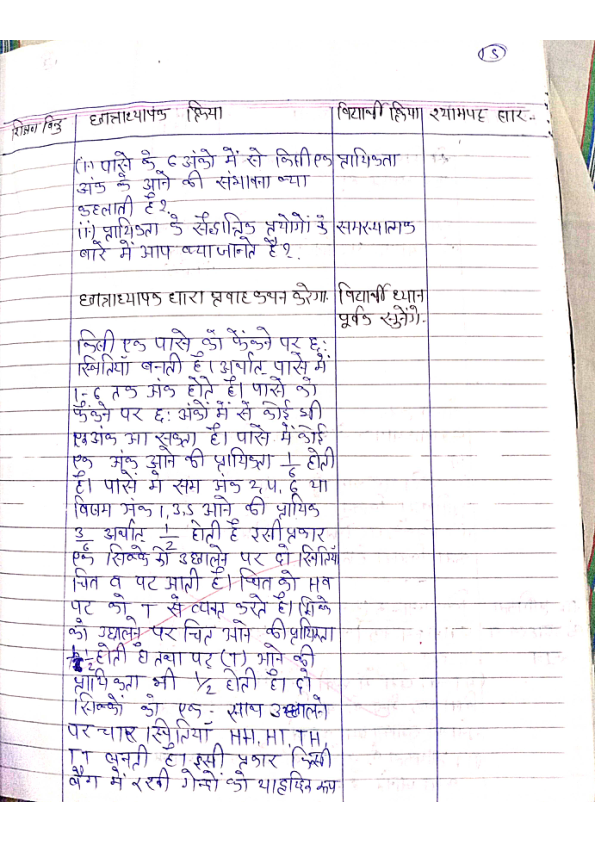 15
शिक्षण बिन्दु छात्राध्यापक क्रिया विद्यार्थी क्रिया श्यामपट्ट सार..
(i) पासे के 6 अंको में से किसी एक प्रायिकता
अंक के आने की संभावना क्या
कहलाती है?
(ii) प्रायिकता के सैद्धान्तिक प्रयोगों के समस्यात्मक
बारे में आप क्या जानते है?
छात्राध्यापक द्वारा प्रवाह कथन करेगा. विद्यार्थी ध्यान
पूर्वक सुनेंगे.
किसी एक पासे को फेंकने पर छ:
स्थितियाँ बनती है। अर्थात् पासे में
1-6 तक अंक होते है। पासे को
फेंकने पर छ: अंकों में से कोई भी
एक अंक आ सकता है। पासे में कोई
एक अंक आने की प्रायिकता 1/6 होती
है। पासे में सम अंक 2,4,6 या
विषम अंक 1,3,5 आने की प्रायिक
3/6 अर्थात् 1/2 होती है इसी प्रकार
एक सिक्के को उछालने पर दो स्थितियाँ
चित व पट आती है। चित को H व
पट को T से व्यक्त करते है। सिक्के
को उछालने पर चित आने की प्रायिकता
1/2 होती है तथा पट (T) आने की
प्रायिकता भी 1/2 होती है। दो
सिक्कों को एक - साथ उछालने
पर चार स्थितियाँ HH, HT, TH,
TT बनती है। इसी प्रकार किसी
बैग में रखी गेन्दों को यादृच्छिक रूप